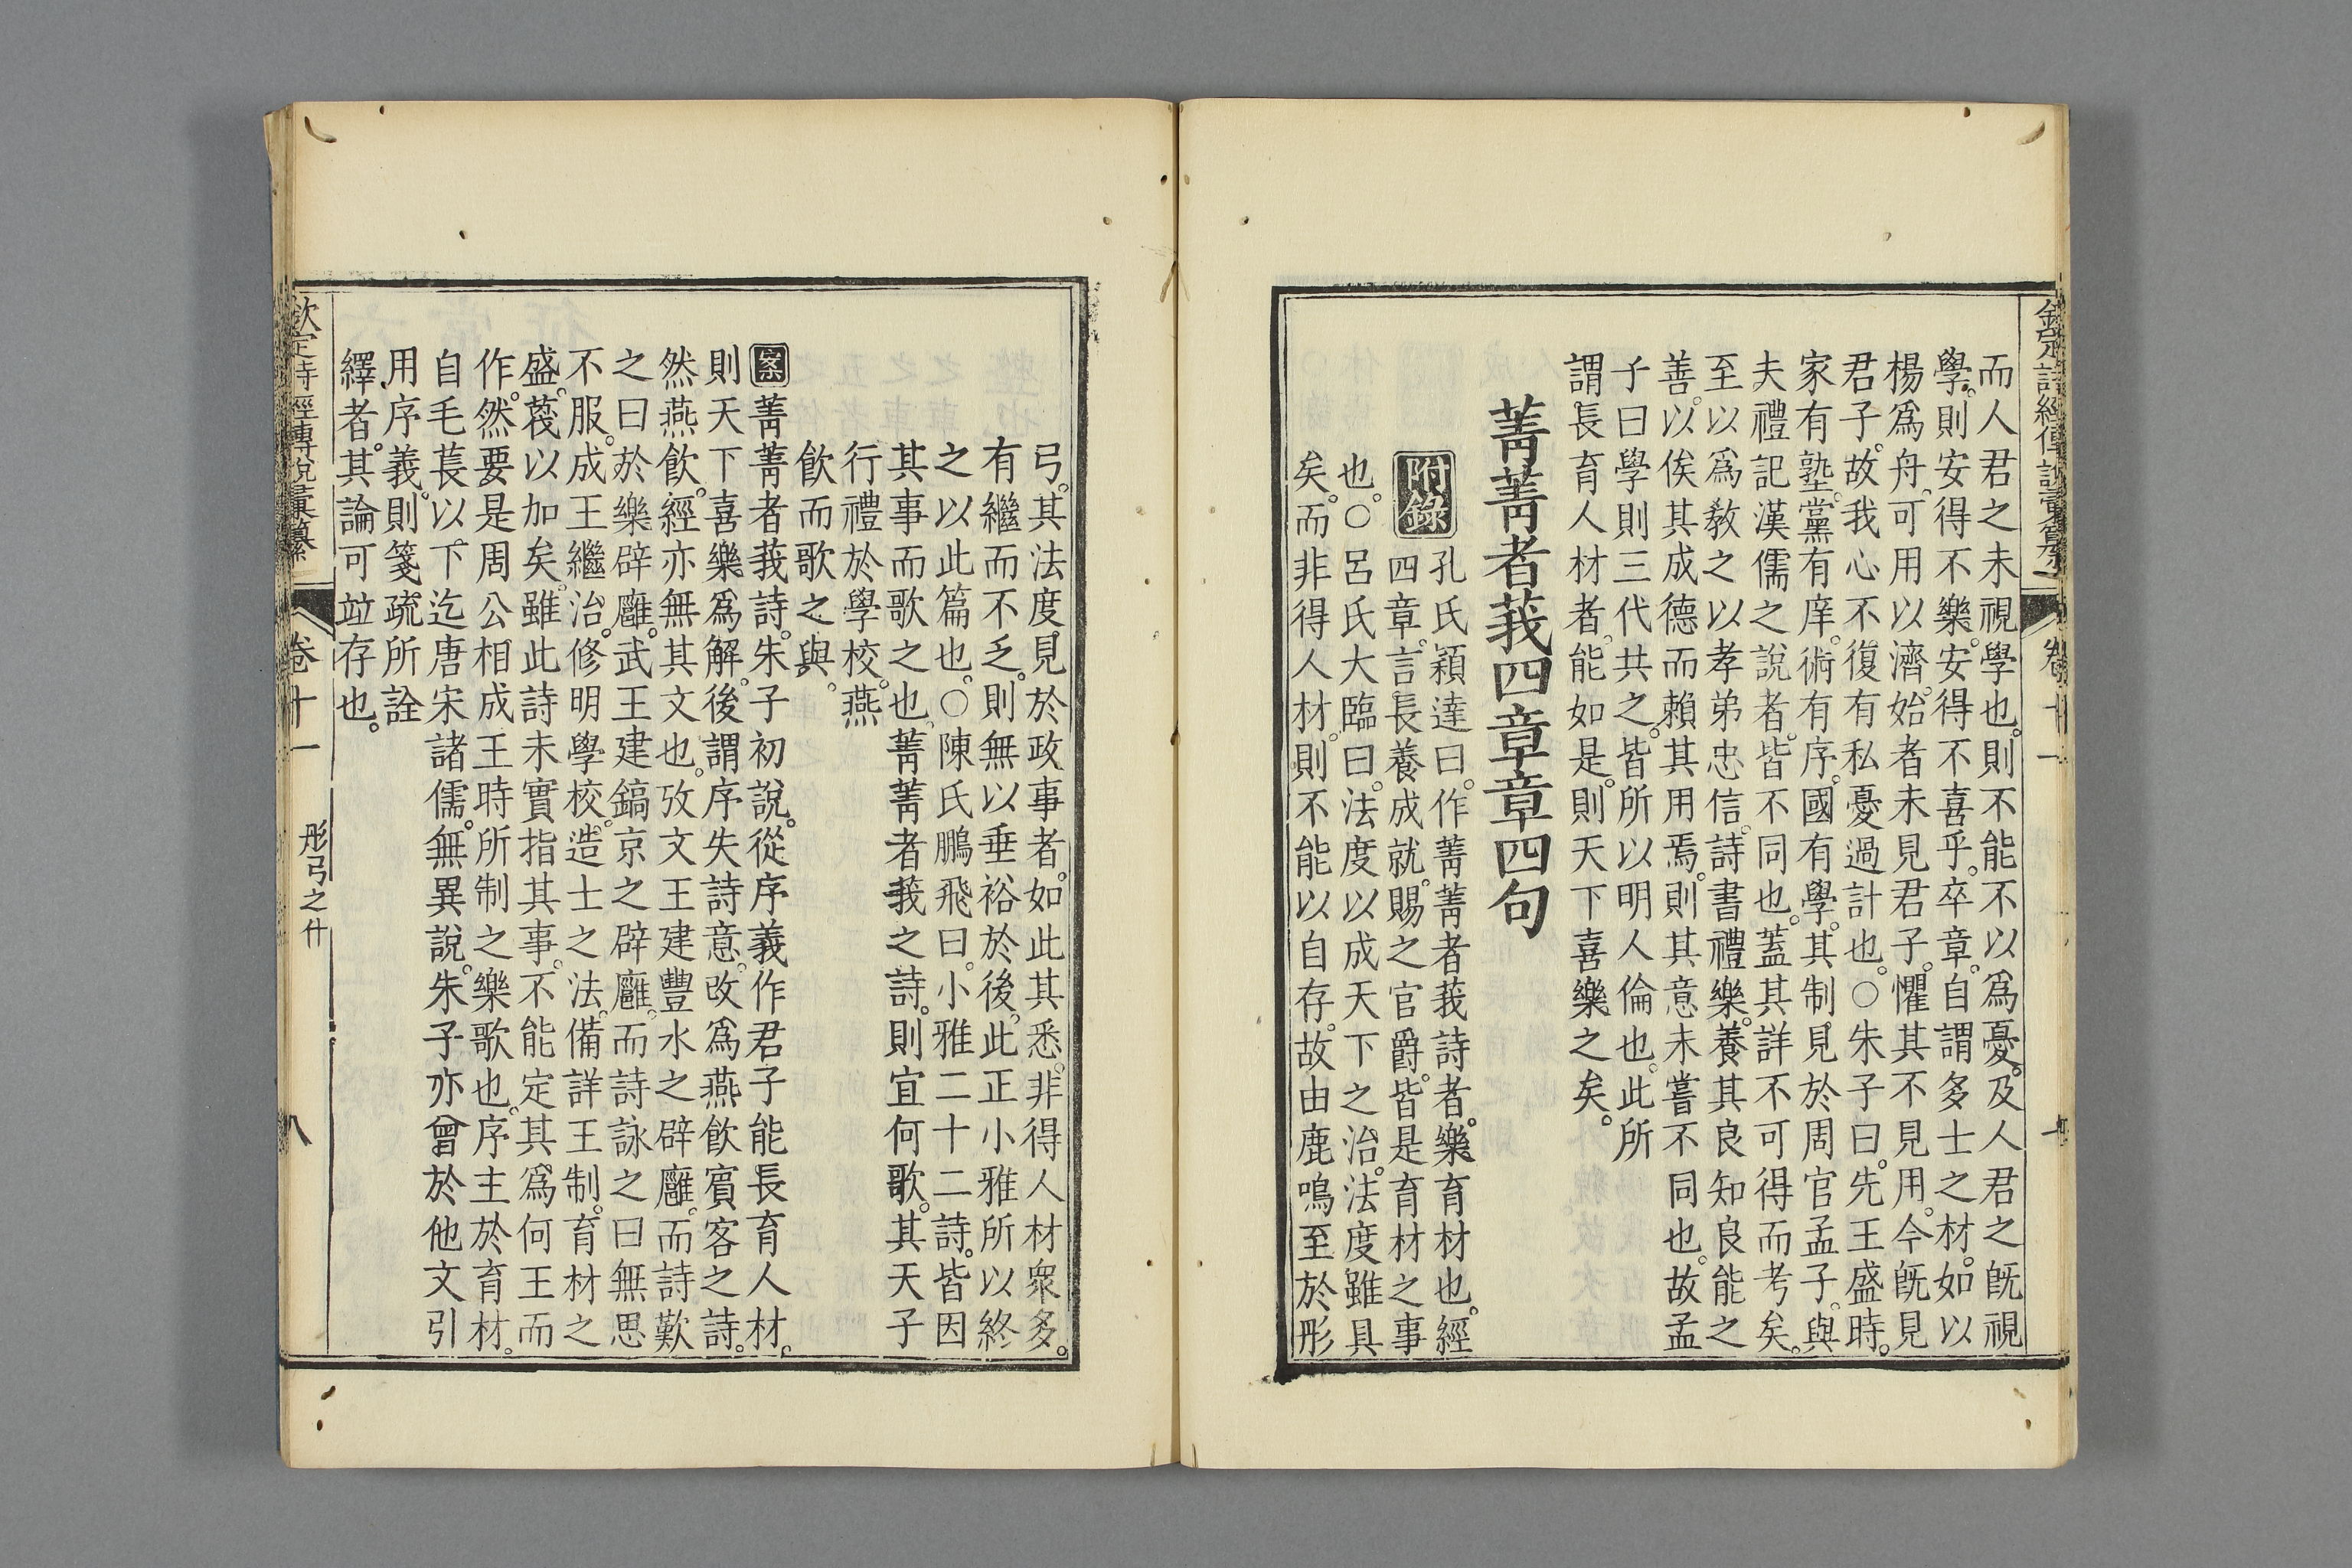 而人君之未視學也。則不能不以爲憂。及人君之旣視
學。則安得不樂。安得不喜乎。卒章。自謂多士之材。如以
楊爲舟。可用以濟。始者未見君子。懼其不見用。今旣見
君子。故我心不復有私憂過計也。○朱子曰。先王盛時。
家有塾。黨有庠。術有序。國有學。其制見於周官孟子。與
夫禮記漢儒之說者。皆不同也。蓋其詳不可得而考矣。
至以爲敎之以孝弟忠信。詩書禮樂。養其良知良能之
善。以俟其成德而賴其用焉。則其意未嘗不同也。故孟
子曰學則三代共之。皆所以明人倫也。此所
謂長育人材者。能如是。則天下喜樂之矣。
菁菁者莪四章章四句
附錄 孔氏穎達曰。作菁菁者莪詩者。樂育材也。經
四章。言長養成就。賜之官爵。皆是育材之事
也。○呂氏大臨曰。法度以成天下之治。法度雖具
矣。而非得人材。則不能以自存。故由鹿鳴至於彤
弓。其法度。見於政事者。如此其悉。非得人材衆多。
有繼而不乏。則無以垂裕於後。此正小雅所以終
之以此篇也。○陳氏鵬飛曰。小雅二十二詩。皆因
其事而歌之也。菁菁者莪之詩。則宜何歌。其天子
行禮於學校。燕
飮而歌之與。
案 菁菁者莪詩。朱子初說。從序義作君子能長育人材。
則天下喜樂爲解。後謂序失詩意。改爲燕飮賓客之詩。
然燕飮。經亦無其文也。攷文王建豐水之辟廱。而詩歎
之曰於樂辟廱。武王建鎬京之辟廱。而詩詠之曰無思
不服。成王繼治。修明學校。造士之法。備詳王制。育材之
盛。蔑以加矣。雖此詩未實指其事。不能定其爲何王而
作。然要是周公相成王時所制之樂歌也。序主於育材。
自毛萇以下。迄唐宋諸儒。無異說。朱子亦曾於他文引
用序義。則箋疏。所詮
繹者。其論可竝存也。
欽定詩經傳說彙纂 卷十一 彤弓之什 八